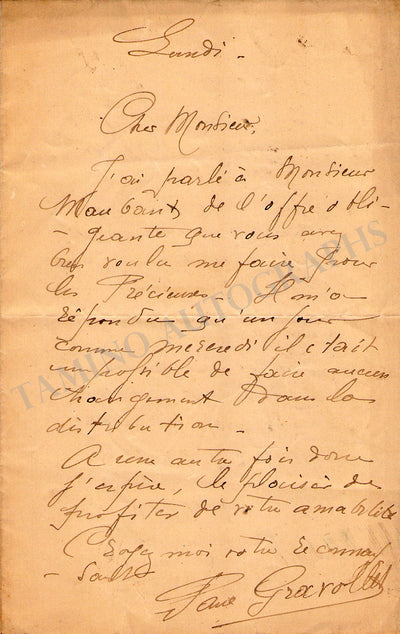 Lundi -
Cher Monsieur,
J'ai parlé à Monsieur
Maubant de l'offre obli-
- geante que vous avez
bien voulu me faire pour
les Précieuses - Il m'a
répondu qu'un jour
comme mercredi il était
impossible de faire aucun
changement dans la
distribution -
A une autre fois donc
j'espère, le plaisir de
profiter de votre amabilité
Croyez moi votre reconnais
- sante
Paul Gravollet
TAMINO AUTOGRAPHS